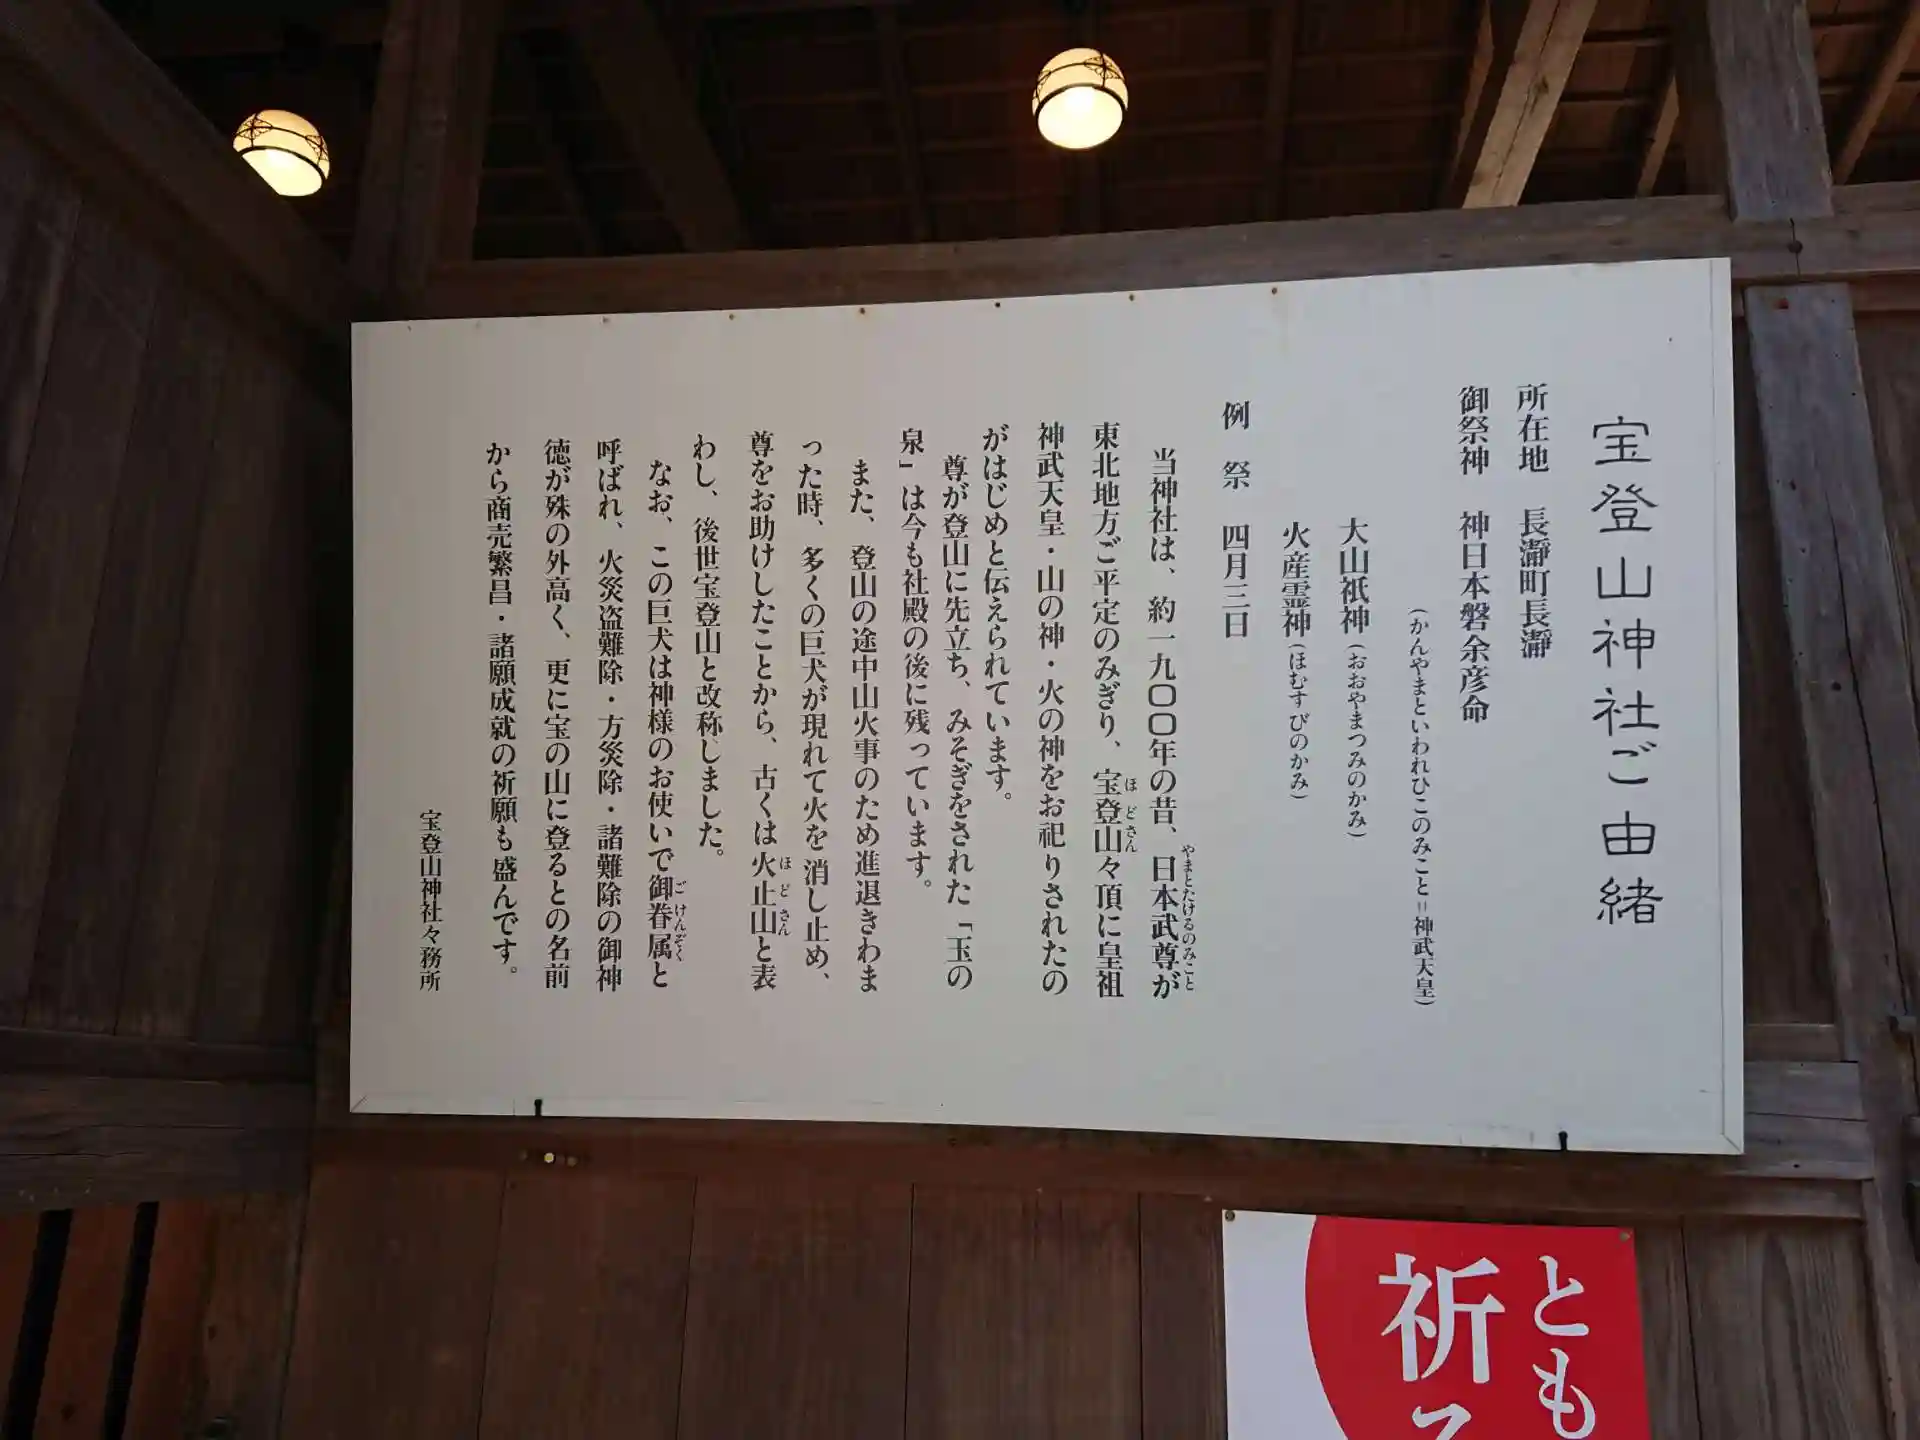 宝登山神社ご由緒
所在地　長瀞町長瀞
御祭神　神日本磐余彦命
（かんやまといわれひこのみこと＝神武天皇）
大山祇神（おおやまつみのかみ）
火産霊神（ほむすびのかみ）
例　祭　四月三日
当神社は、約一九〇〇年の昔、日本武尊が
やまとたけるのみこと
東北地方ご平定のみぎり、宝登山々頂に皇祖
ほどさん
神武天皇・山の神・火の神をお祀りされたの
がはじめと伝えられています。
尊が登山に先立ち、みそぎをされた「玉の
泉」は今も社殿の後に残っています。
また、登山の途中山火事のため進退きわま
った時、多くの巨犬が現れて火を消し止め、
尊をお助けしたことから、古くは火止山と表
ほどさん
わし、後世宝登山と改称しました。
なお、この巨犬は神様のお使いで御眷属と
ごけんぞく
呼ばれ、火災盗難除・方災除・諸難除の御神
徳が殊の外高く、更に宝の山に登るとの名前
から商売繁昌・諸願成就の祈願も盛んです。
宝登山神社々務所
とも
祈